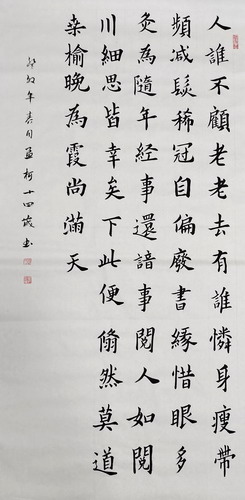 人誰不顧老老去有誰憐身瘦帶
頻减髮稀冠自偏廢書緣惜眼多
灸為隨年經事還諳事閱人如閱
川細思皆幸矣下此便翛然莫道
桒榆晚為霞尚滿天
年孟柯十四歲書